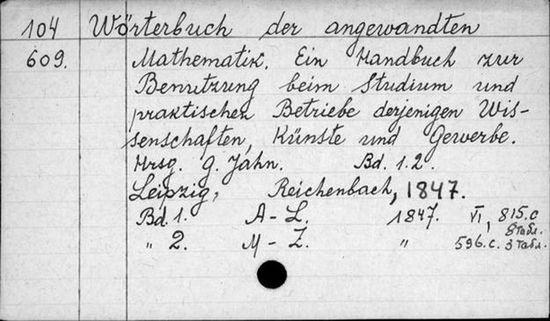 104 Wörterbuch der angewandten
609. Mathematik. Ein Handbuch zur
Benutzung beim Studium und
praktischen Betriebe derjenigen Wis-
senschaften, Künste und Gewerbe.
Hrsg. g. Jahn. Bd. 1.2.
Leipzig, Reichenbach, 1847.
Bd. 1. A-L. 1847. VI, 815.c
8 табл.
„ 2. M-Z. „ 596.c. 3 табл.